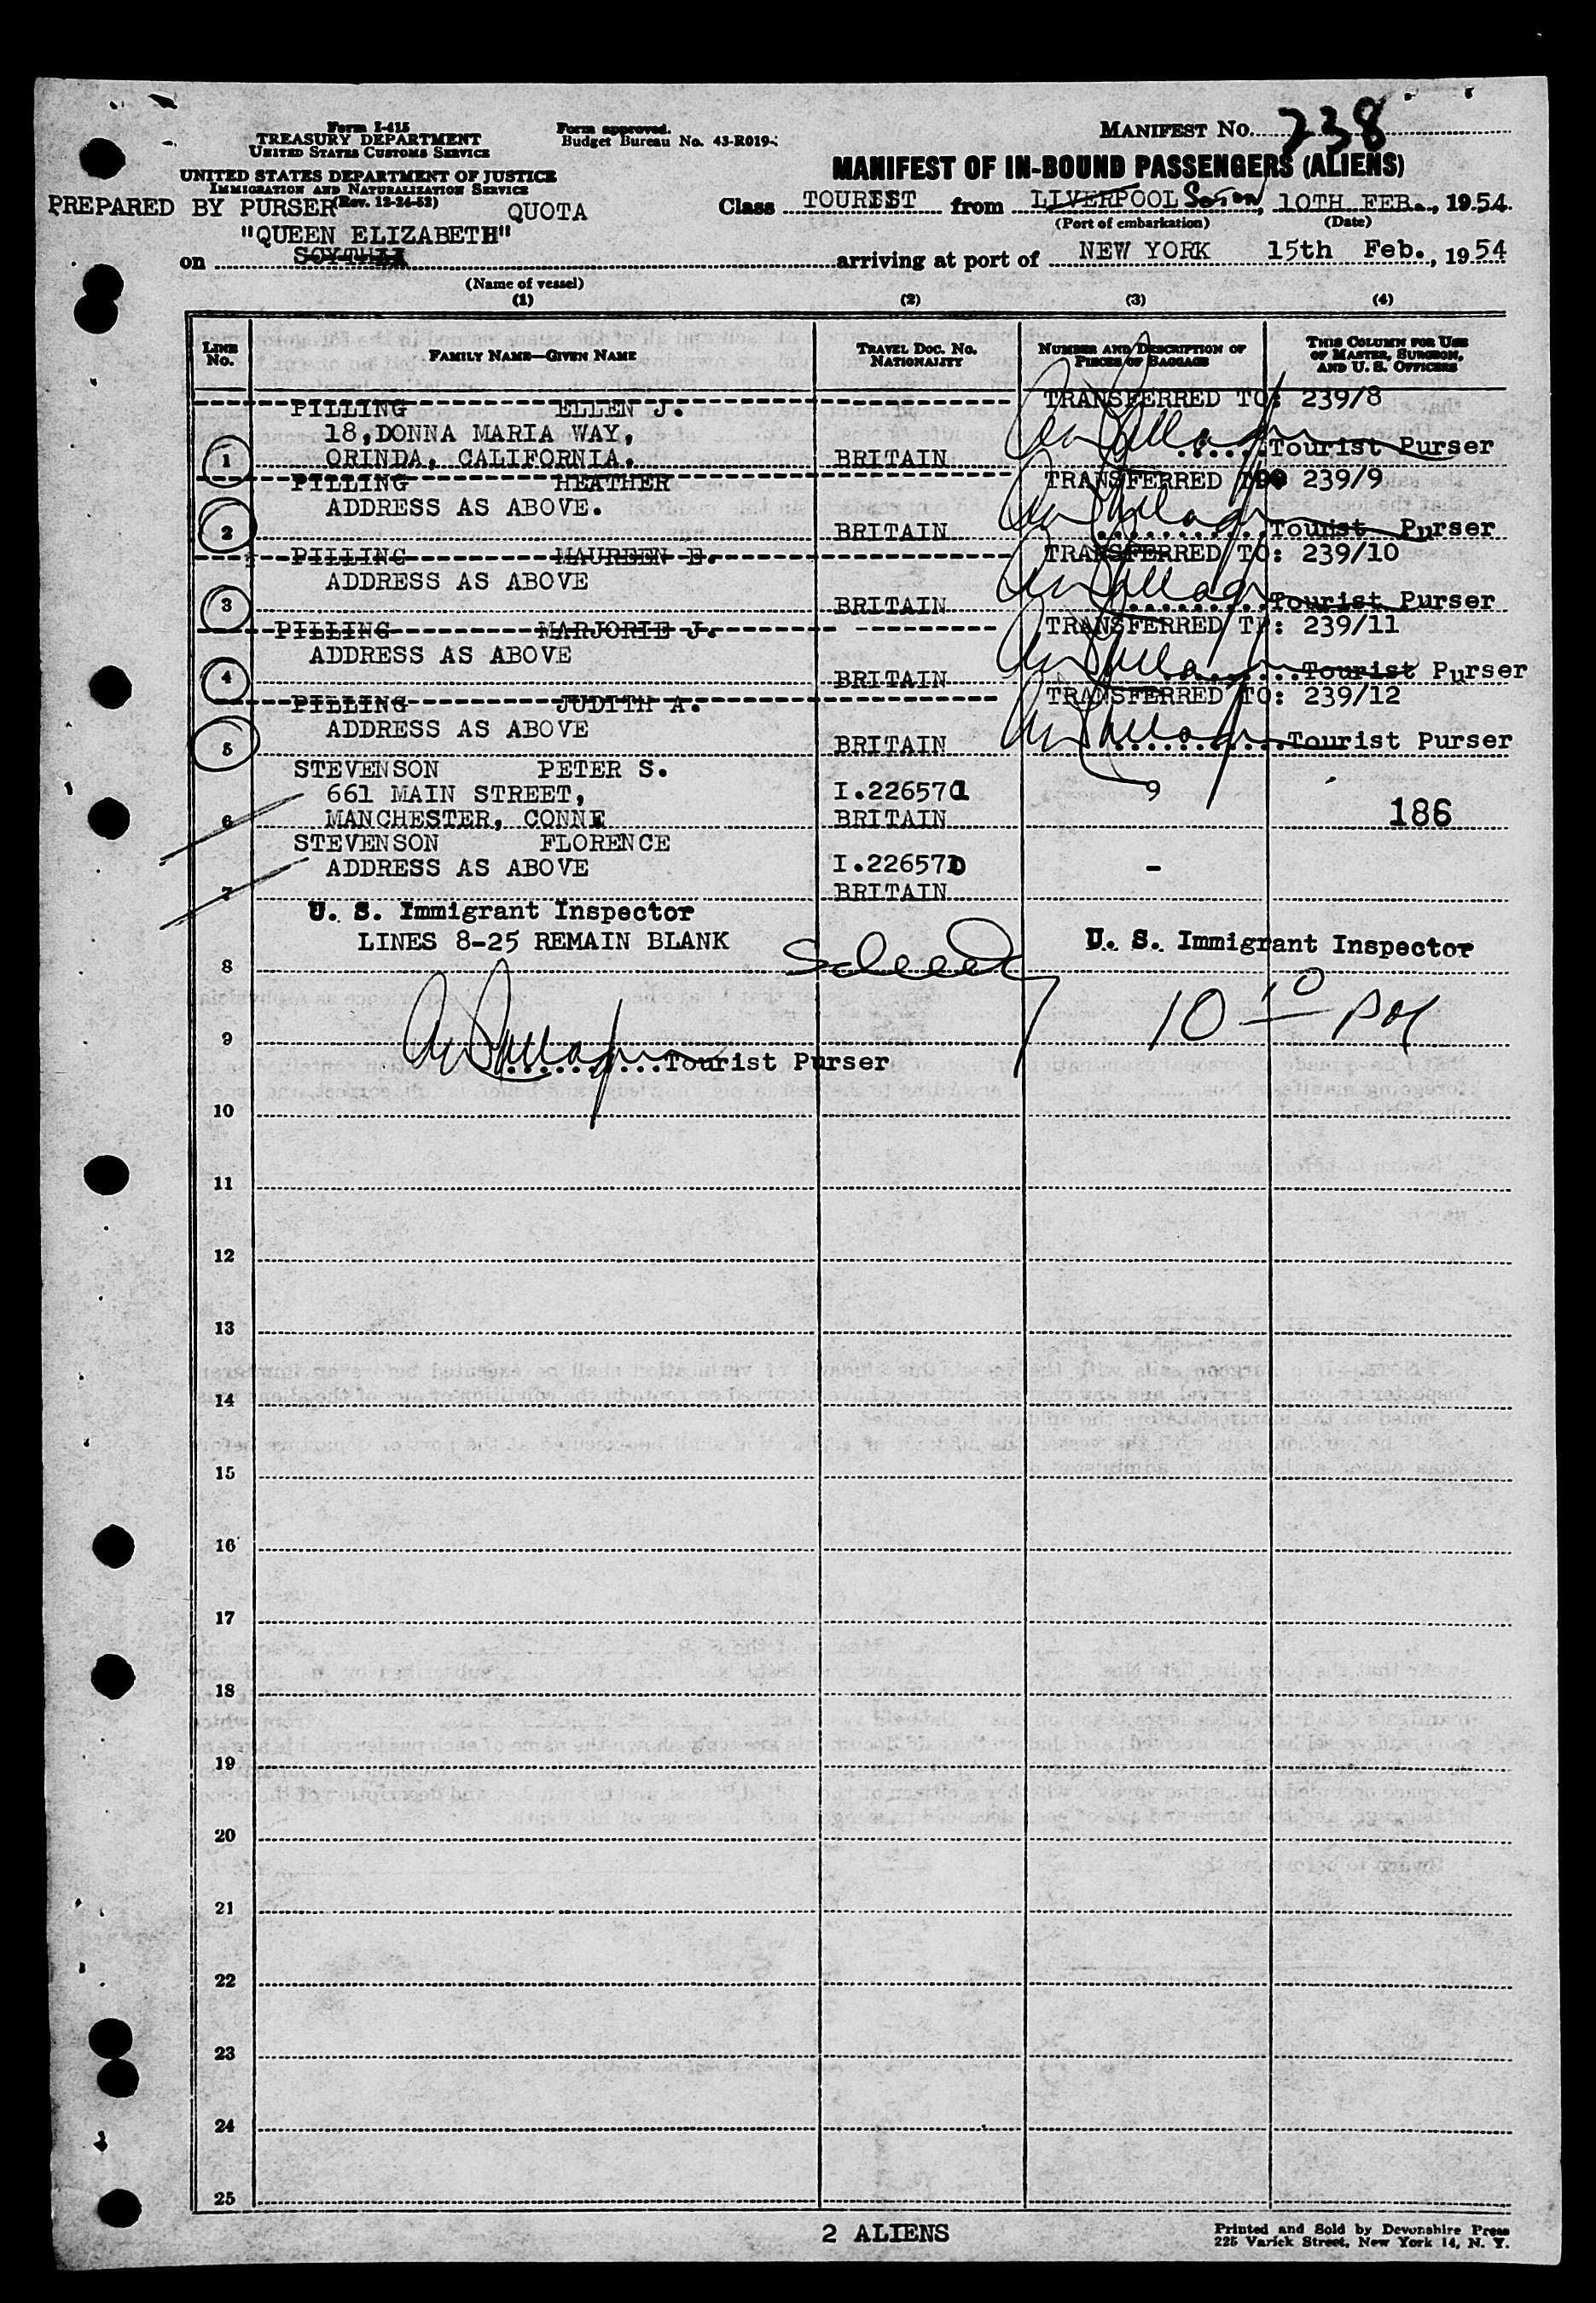 Form I-415
TREASURY DEPARTMENT
UNITED STATES CUSTOMS SERVICE
UNITED STATES DEPARTMENT OF JUSTICE
IMMIGRATION AND NATURALIZATION SERVICE
(Rev. 12-24-52)
PREPARED BY PURSER
QUOTA
Form approved.
Budget Bureau No. 43-R019-
MANIFEST No. 238
MANIFEST OF IN-BOUND PASSENGERS (ALIENS)
Class TOURIST from LIVERPOOL Soton, 10TH FEB., 1954.
(Port of embarkation) (Date)
"QUEEN ELIZABETH"
on SCYTHIA arriving at port of NEW YORK 15th Feb., 1954
(Name of vessel)
(1) (2) (3) (4)
LINE No. FAMILY NAME—GIVEN NAME TRAVEL DOC. NO. NATIONALITY NUMBER AND DESCRIPTION OF PIECES OF BAGGAGE THIS COLUMN FOR USE OF MASTER, SURGEON, AND U. S. OFFICERS
PILLING ELLEN J. TRANSFERRED TO: 239/8
18,DONNA MARIA WAY,
1 ORINDA, CALIFORNIA. BRITAIN Tourist Purser
PILLING HEATHER TRANSFERRED TO: 239/9
ADDRESS AS ABOVE.
2 BRITAIN Tourist Purser
PILLING MAUREEN E. TRANSFERRED TO: 239/10
ADDRESS AS ABOVE
3 BRITAIN Tourist Purser
PILLING MARJORIE J. TRANSFERRED TP: 239/11
ADDRESS AS ABOVE
4 BRITAIN Tourist Purser
PILLING JUDITH A. TRANSFERRED TO: 239/12
ADDRESS AS ABOVE
5 BRITAIN Tourist Purser
STEVENSON PETER S.
661 MAIN STREET, I.226571 9
6 MANCHESTER, CONNE BRITAIN 186
STEVENSON FLORENCE
ADDRESS AS ABOVE I.226570 -
7 BRITAIN
U. S. Immigrant Inspector
LINES 8-25 REMAIN BLANK U. S. Immigrant Inspector
8
10 10 PM
9
Tourist Purser
10
11
12
13
14
15
16
17
18
19
20
21
22
23
24
25
2 ALIENS
Printed and Sold by Devonshire Press
225 Varick Street, New York 14, N. Y.